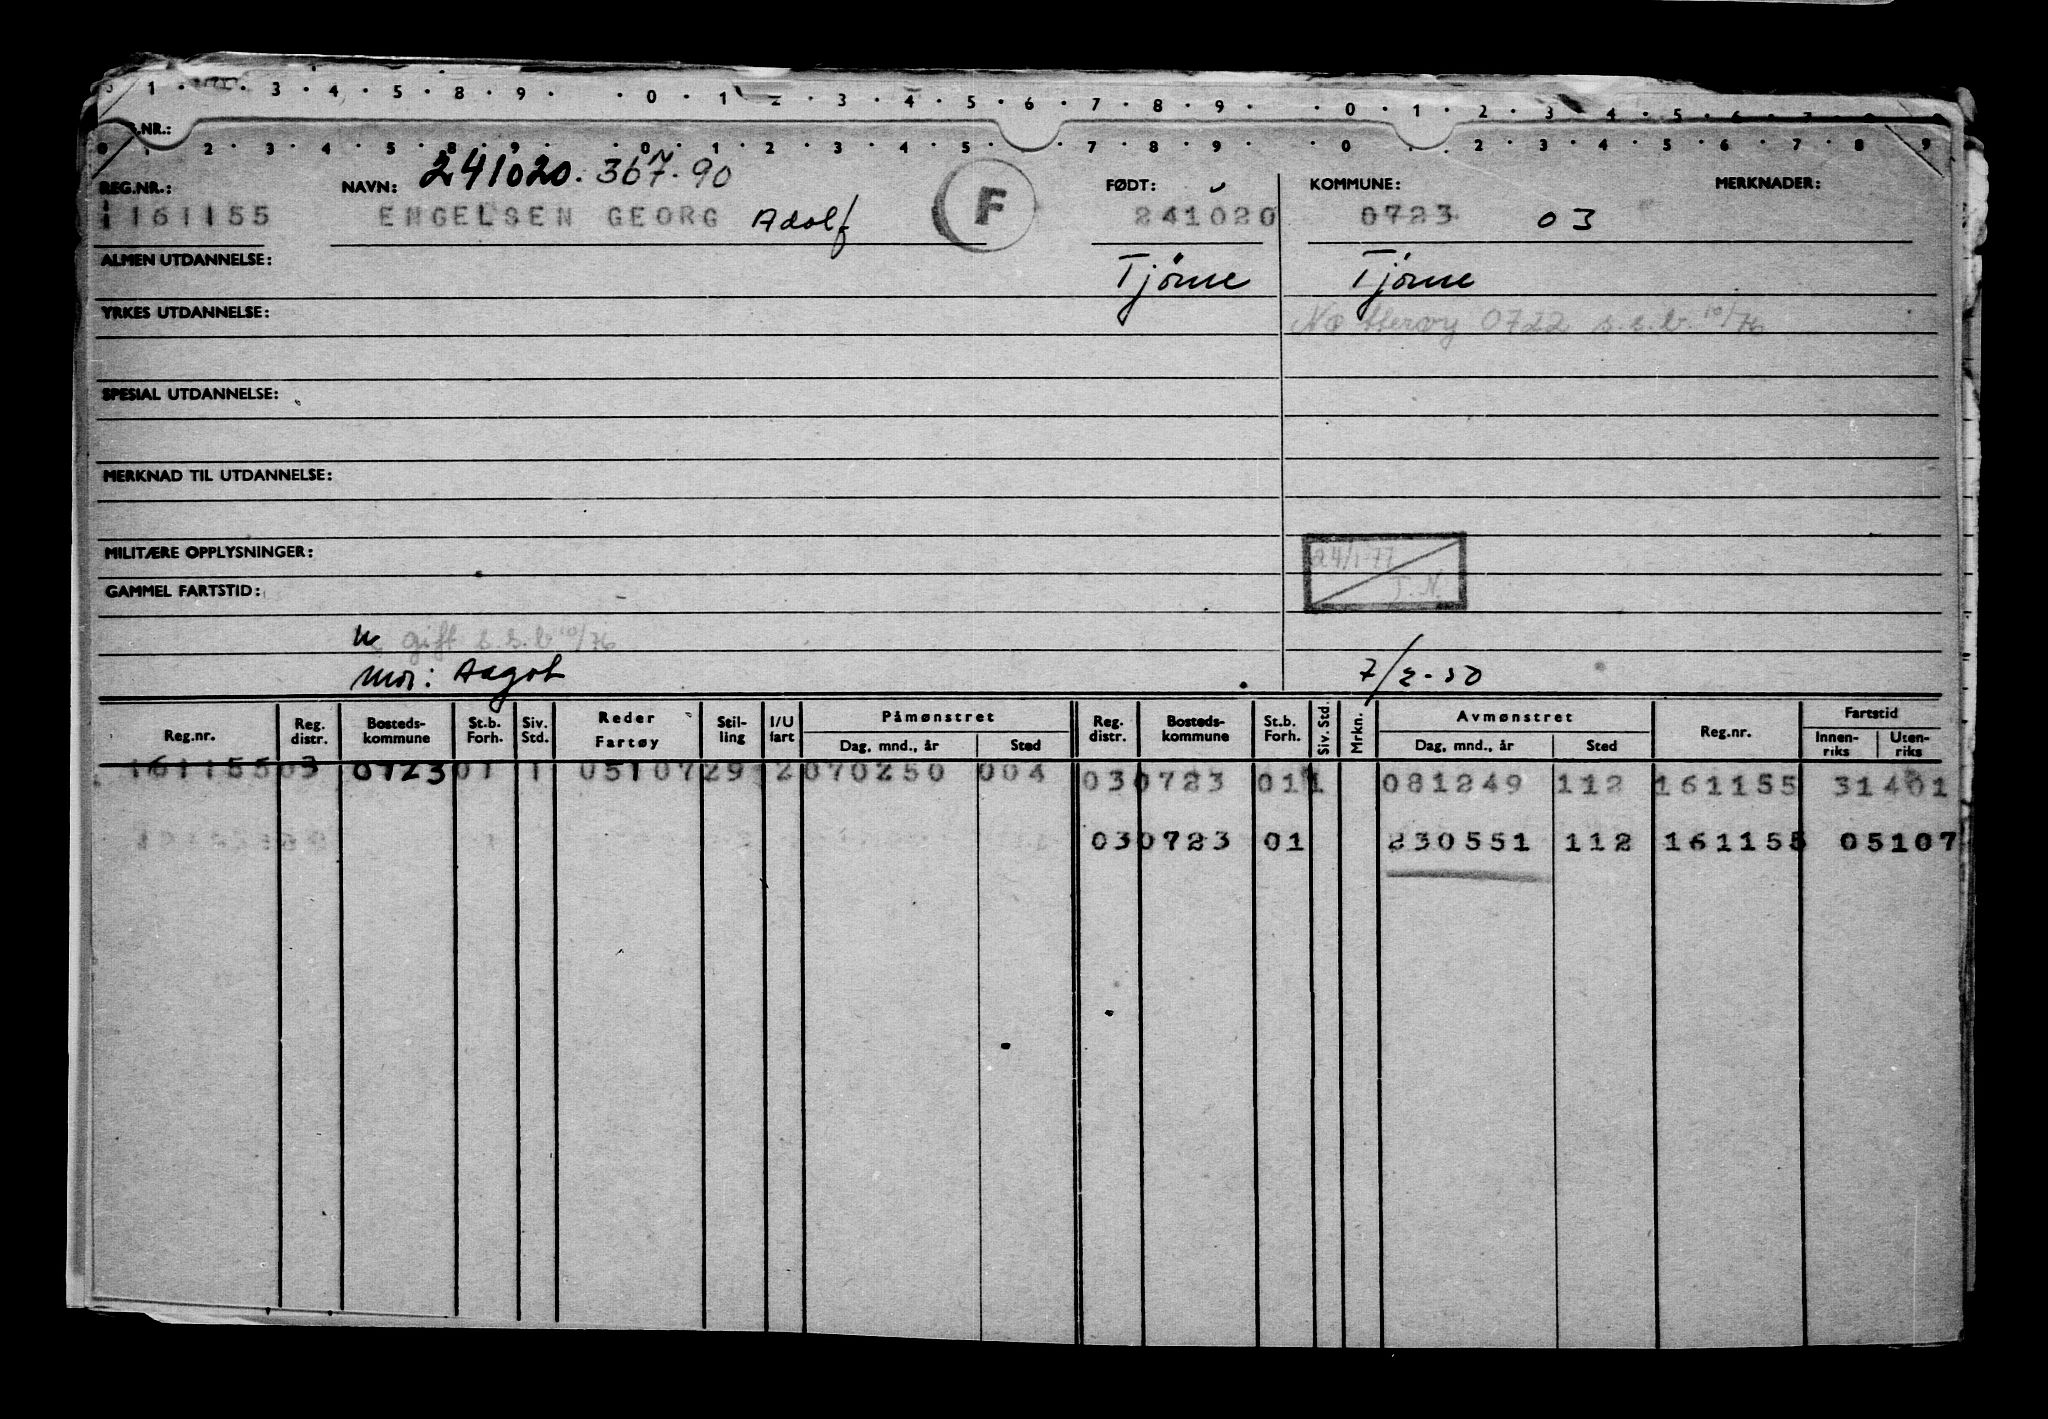 0 1 . . 3 . 4 . 5 . 8 . 9 . . 0 . 1 2 . 3 . 4 . 5 . 6 . 7 . 8 . 9 . . 0 . 1 . 2 . 3 . 4 . 5 . 6 . 7 . 8 9
.NR.:
0 1 2 . 3 . 4 . 5 . 8 . 9 . . 0 . 1 . 2 . 3 . 4 . 5 . . 7 . 8 . 9 . . 0 . . 2 . 3 . 4 . 5 . 6 . 7 . 8 . 9
241020. 367.90
REG.NR.: NAVN: FØDT: KOMMUNE: MERKNADER:
161155 ENGELSEN GEORG Adolf F 241020 0723 03
ALMEN UTDANNELSE: Tjöme Tjöme
YRKES UTDANNELSE: Nøtterøy 0722 s.s.b. 10/76
SPESIAL UTDANNELSE:
MERKNAD TIL UTDANNELSE:
MILITÆRE OPPLYSNINGER: 24/1-77
GAMMEL FARTSTID: T.N.
gift s.s.b 10/76
Mor: Aagot 7/2-50
Reg.nr. Reg. distr. Bosteds-kommune St.b. Forh. Siv. Std. Reder Fartøy Stil-ling I/U fart Påmønstret Dag, mnd., år Sted Reg. distr. Bosteds-kommune St.b. Forh. Siv. Std. Mrkn. Avmønstret Dag, mnd., år Sted Reg.nr. Fartstid Innen-riks Uten-riks
161155 03 0723 01 1 05107 29 2 070250 004 03 0723 01 1 081249 112 161155 31401
03 0723 01 230551 112 161155 05107